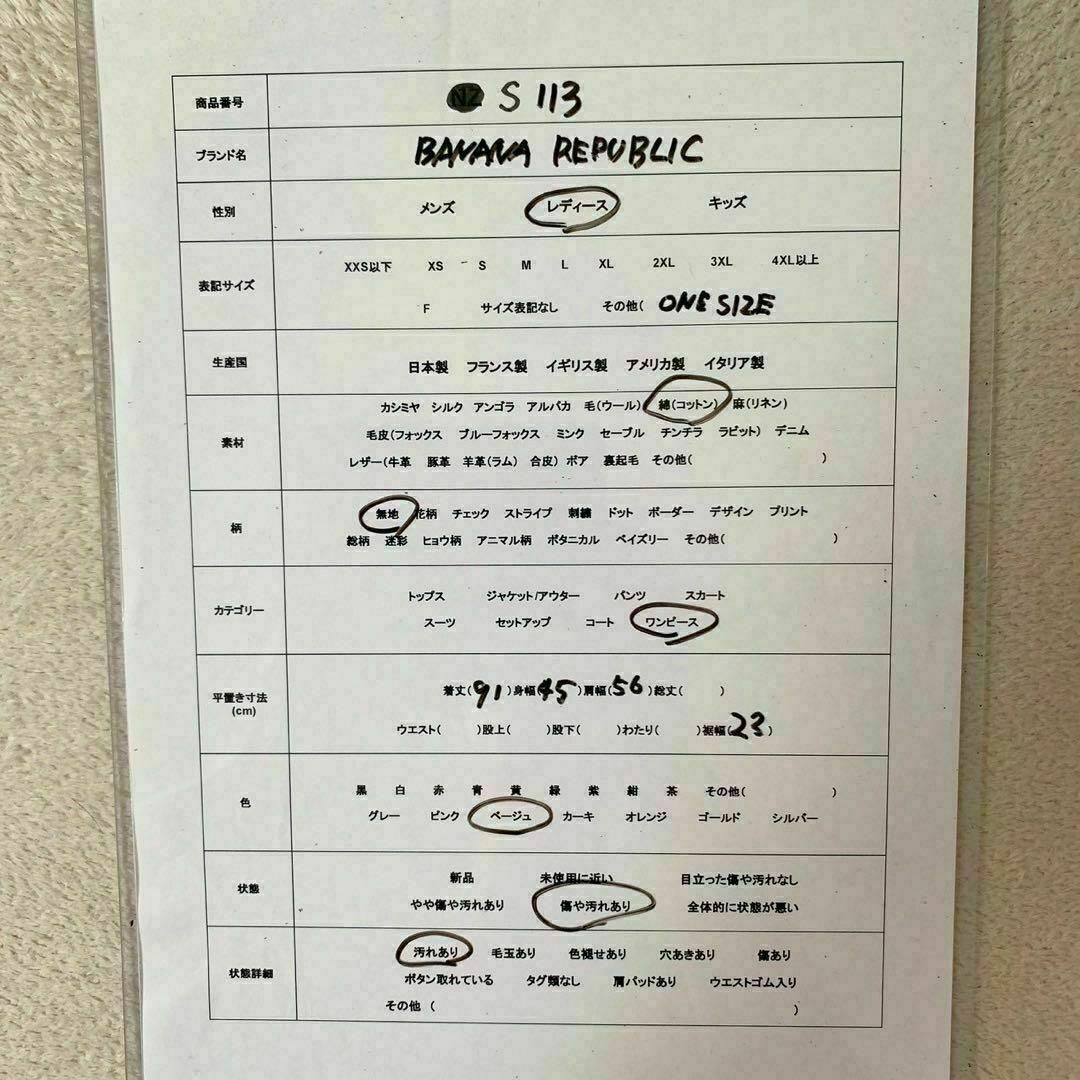 商品番号 NZ S 113
ブランド名 BANANA REPUBLIC
性別 メンズ レディース キッズ
表記サイズ
XXS以下 XS S M L XL 2XL 3XL 4XL以上
F サイズ表記なし その他( ONE SIZE
生産国 日本製 フランス製 イギリス製 アメリカ製 イタリア製
素材
カシミヤ シルク アンゴラ アルパカ 毛(ウール) 綿(コットン) 麻(リネン)
毛皮(フォックス ブルーフォックス ミンク セーブル チンチラ ラビット) デニム
レザー(牛革 豚革 羊革(ラム) 合皮) ボア 裏起毛 その他( )
柄
無地 花柄 チェック ストライプ 刺繍 ドット ボーダー デザイン プリント
総柄 迷彩 ヒョウ柄 アニマル柄 ボタニカル ペイズリー その他( )
カテゴリー
トップス ジャケット/アウター パンツ スカート
スーツ セットアップ コート ワンピース
平置き寸法
(cm)
着丈(91)身幅(45)肩幅(56)総丈( )
ウエスト( )股上( )股下( )わたり( )裾幅(23)
色
黒 白 赤 青 黄 緑 紫 紺 茶 その他( )
グレー ピンク ベージュ カーキ オレンジ ゴールド シルバー
状態
新品 未使用に近い 目立った傷や汚れなし
やや傷や汚れあり 傷や汚れあり 全体的に状態が悪い
状態詳細
汚れあり 毛玉あり 色褪せあり 穴あきあり 傷あり
ボタン取れている タグ類なし 肩パッドあり ウエストゴム入り
その他 ( )